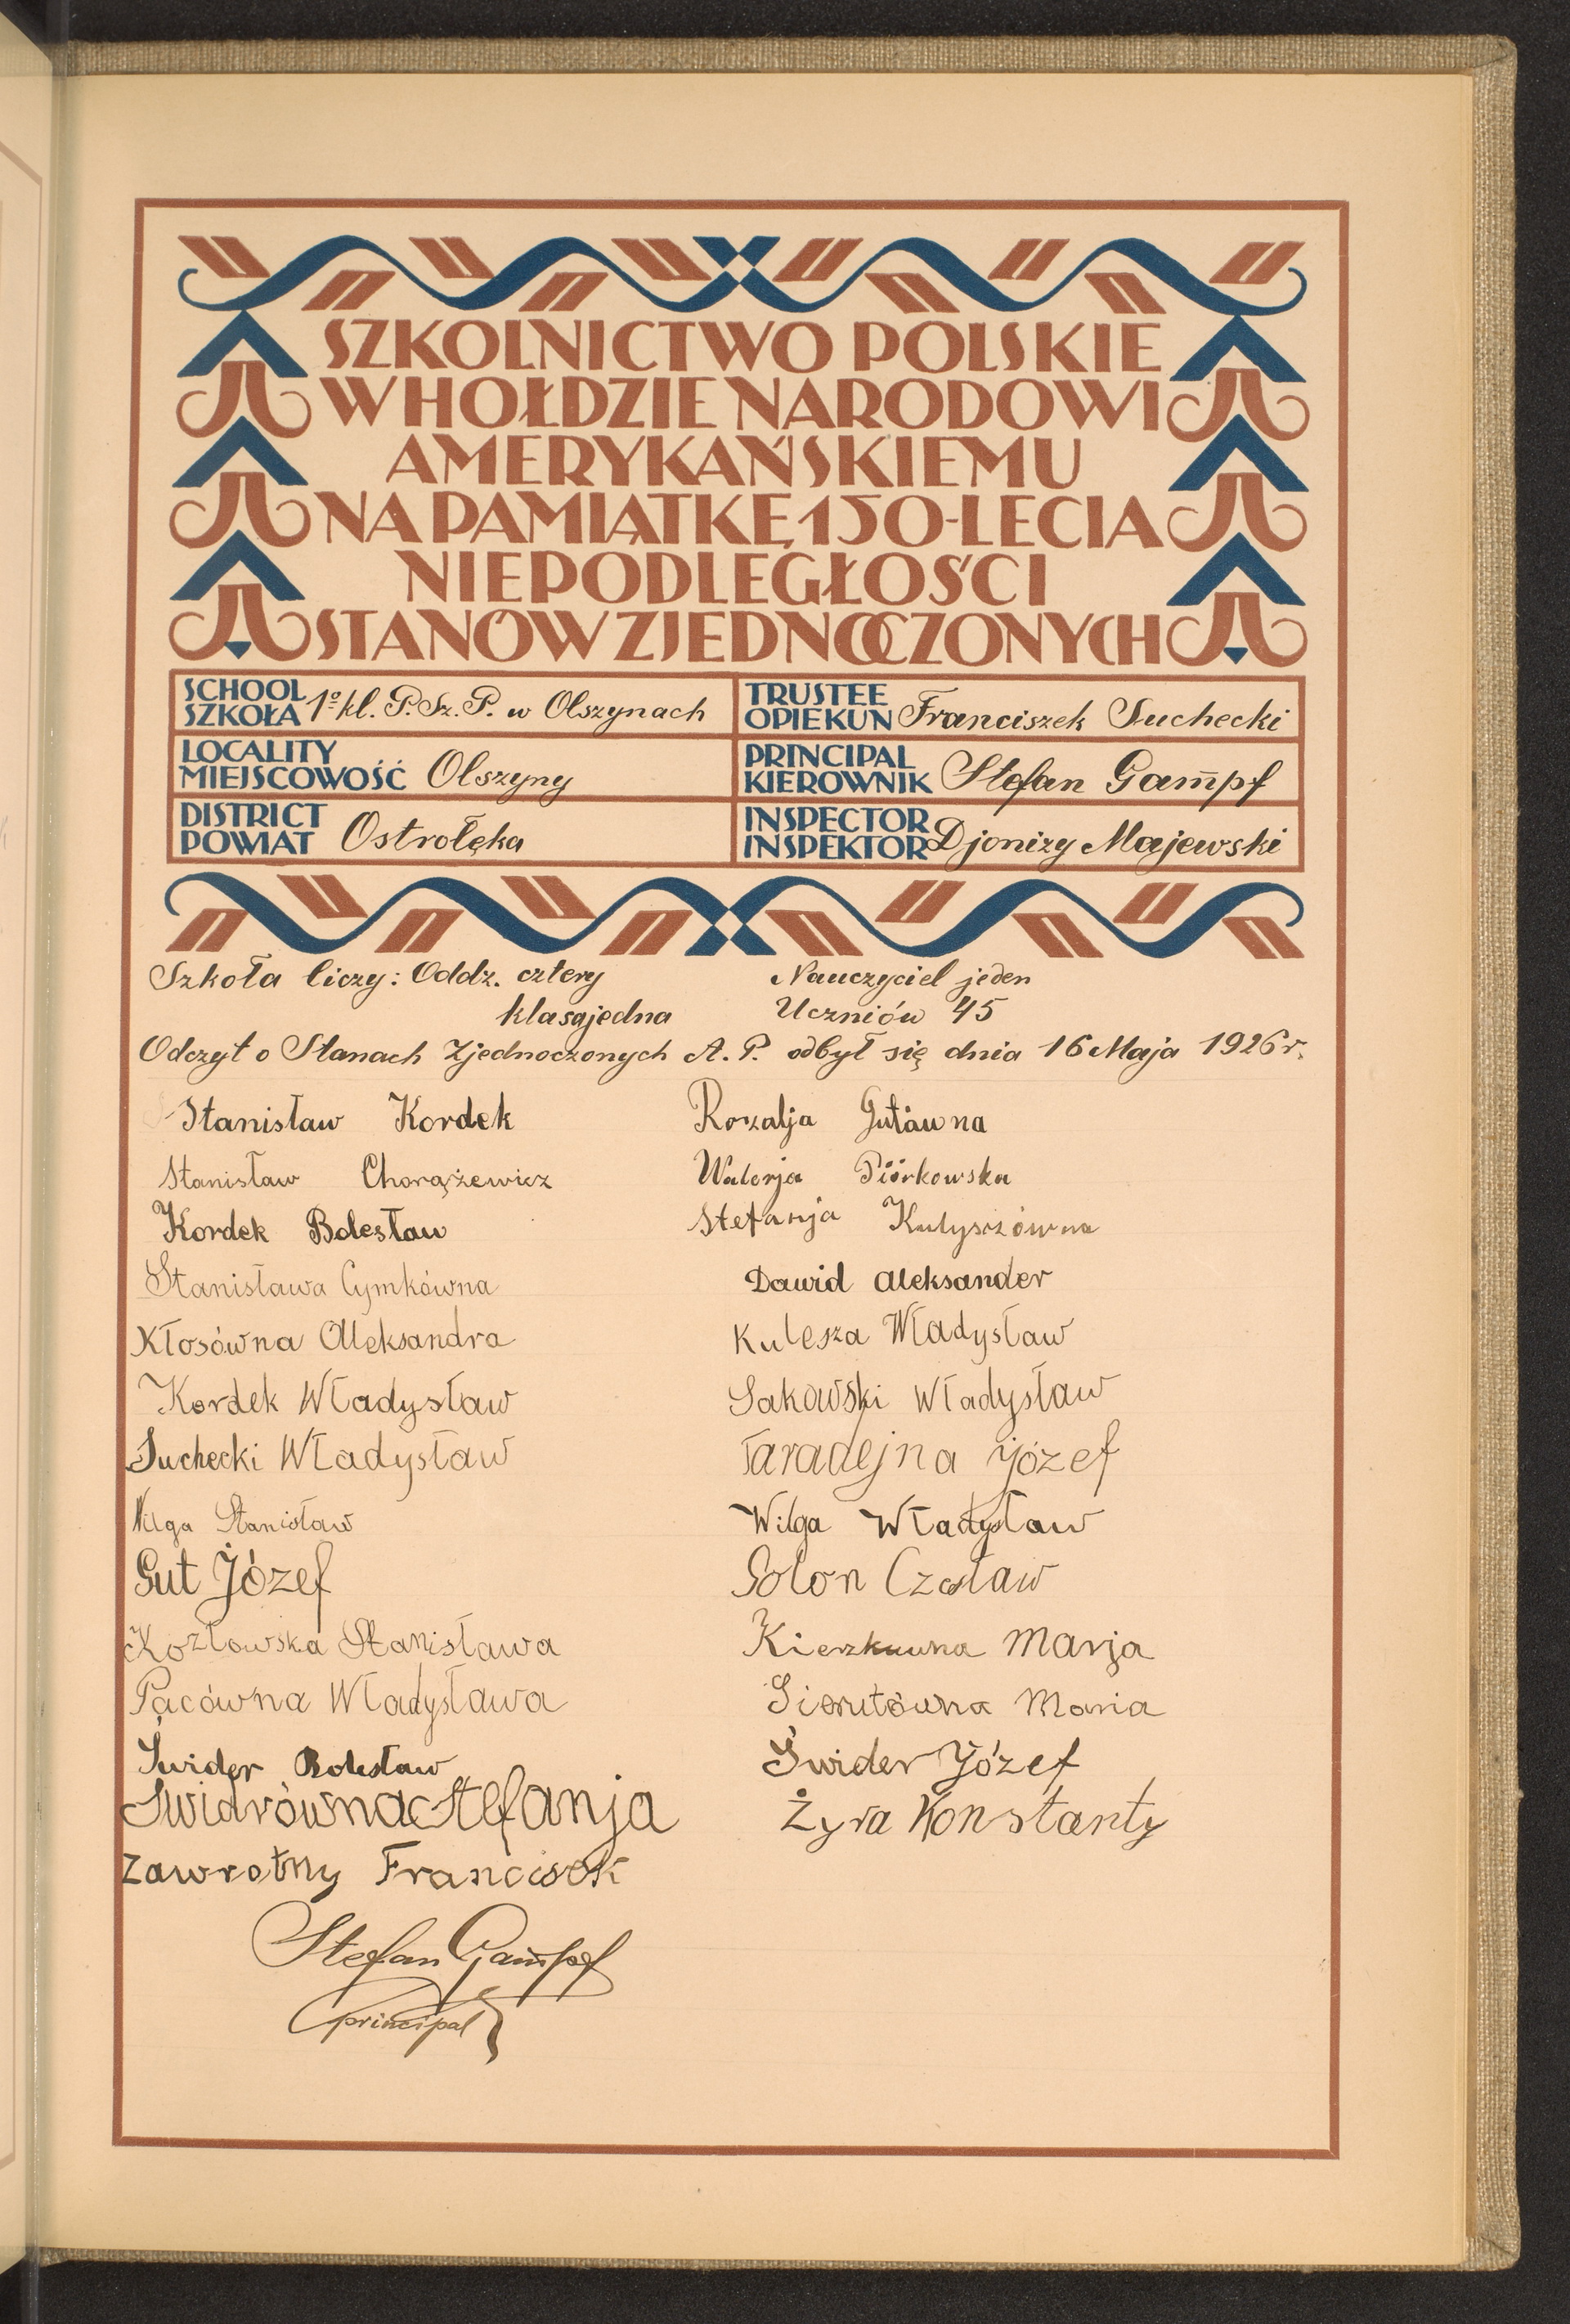 SZKOLNICTWO POLSKIE
W HOŁDZIE NARODOWI
AMERYKAŃSKIEMU
NA PAMIĄTKĘ 150-LECIA
NIEPODLEGŁOŚCI
STANÓW ZJEDNOCZONYCH
SCHOOL
SZKOŁA 1º kl. P. Sz. P. w Olszynach
TRUSTEE
OPIEKUN Franciszek Suchecki
LOCALITY
MIEJSCOWOŚĆ Olszyny
PRINCIPAL
KIEROWNIK Stefan Gampf
DISTRICT
POWIAT Ostrołęka
INSPECTOR
INSPEKTOR Djonizy Majewski
Szkoła liczy: Oddz. cztery
klasa jedna
Nauczyciel jeden
Uczniów 45
Odczyt o Stanach Zjednoczonych A. P. odbył się dnia 16 Maja 1926 r.
Stanisław Kordek
Stanisław Chorążewicz
Kordek Bolesław
Stanisława Cymkówna
Kłosówna Aleksandra
Kordek Władysław
Suchecki Władysław
Wilga Stanisław
Gut Józef
Kozłowska Stanisława
Pacówna Władysława
Świder Bolesław
Świdrówna Stefanja
Zawrotny Francisek
Rozalja Gutówna
Walerja Piórkowska
Stefanja Kulyszówna
Dawid Aleksander
Kulesza Władysław
Sakowski Władysław
Taradejna Józef
Wilga Władysław
Golon Czesław
Marja
Sierutówna Maria
Świder Józef
Żyra Konstanty
Stefan Gampf
principal